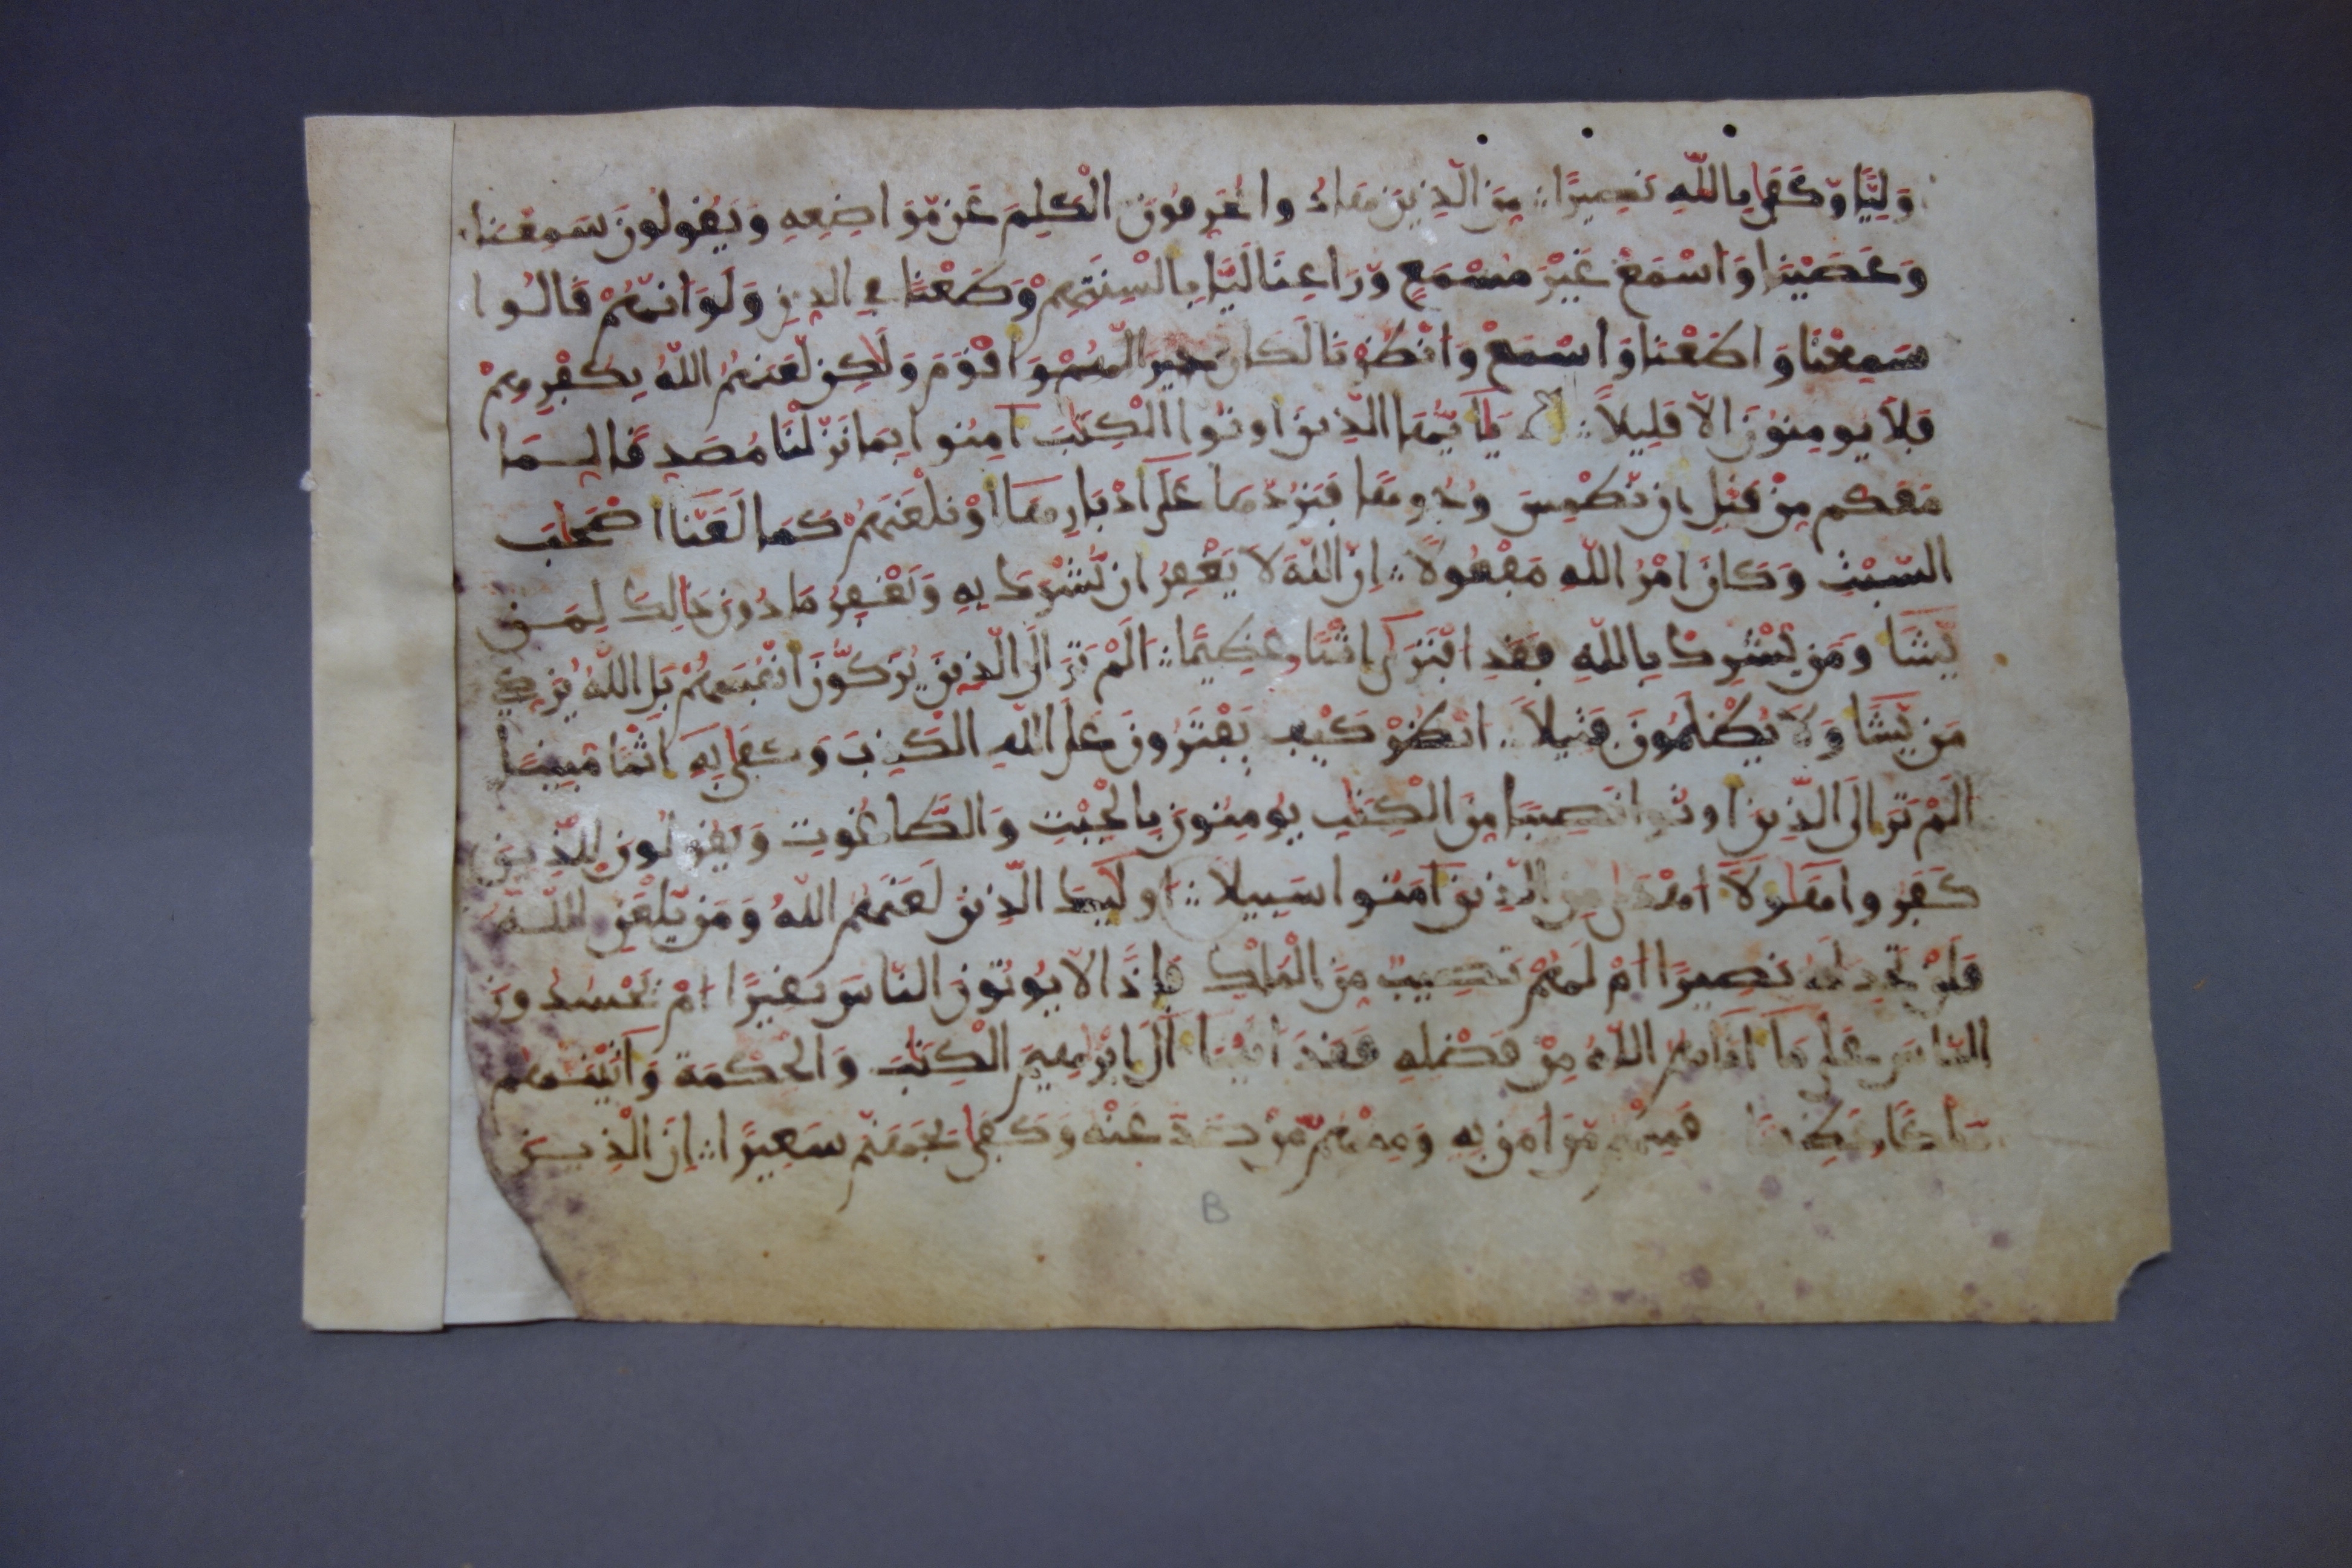 وَلِيًّا وَّكَفَى بِاللَّهِ نَصِيرًا مِّنَ الَّذِينَ هَادُوا يُحَرِّفُونَ الْكَلِمَ عَن مَّوَاضِعِهِ وَيَقُولُونَ سَمِعْنَا
وَعَصَيْنَا وَاسْمَعْ غَيْرَ مُسْمَعٍ وَّرَاعِنَا لَيًّا بِأَلْسِنَتِهِمْ وَطَعْنًا فِي الدِّينِ وَلَوَ اَنَّهُمْ قَالُوا
سَمِعْنَا وَأَطَعْنَا وَاسْمَعْ وَانْظُرْنَا لَكَانَ خَيْرًا لَّهُمْ وَأَقْوَمَ وَلَكِن لَّعَنَهُمُ اللَّهُ بِكُفْرِهِمْ
فَلَا يُومِنُونَ إِلَّا قَلِيلًا يَا أَيُّهَا الَّذِينَ أُوتُوا الْكِتَبَ آمِنُوا بِمَا نَزَّلْنَا مُصَدِّقًا لِّمَا
مَعَكُم مِّن قَبْلِ أَن نَّطْمِسَ وُجُوهًا فَنَرُدَّهَا عَلَى أَدْبَارِهَا أَوْ نَلْعَنَهُمْ كَمَا لَعَنَّا أَصْحَابَ
السَّبْتِ وَكَانَ أَمْرُ اللَّهِ مَفْعُولًا إِنَّ اللَّهَ لَا يَغْفِرُ أَن يُّشْرَكَ بِهِ وَيَغْفِرُ مَا دُونَ ذَالِكَ لِمَن
يَّشَا وَمَن يُّشْرِكْ بِاللَّهِ فَقَدِ افْتَرَى إِثْمًا عَظِيمًا أَلَمْ تَرَ إِلَى الَّذِينَ يُزَكُّونَ أَنْفُسَهُمْ بَلِ اللَّهُ يُزَكِّي
مَن يَّشَا وَلَا يُظْلَمُونَ فَتِيلًا انْظُرْ كَيْفَ يَفْتَرُونَ عَلَى اللَّهِ الْكَذِبَ وَكَفَى بِهِ إِثْمًا مُّبِينًا
أَلَمْ تَرَ إِلَى الَّذِينَ أُوتُوا نَصِيبًا مِّنَ الْكِتَبِ يُومِنُونَ بِالْجِبْتِ وَالطَّاغُوتِ وَيَقُولُونَ لِلَّذِينَ
كَفَرُوا هَؤُلَا أَهْدَى مِنَ الَّذِينَ آمَنُوا سَبِيلًا أُولَئِكَ الَّذِينَ لَعَنَهُمُ اللَّهُ وَمَن يَّلْعَنِ اللَّهُ
فَلَن تَجِدَ لَهُ نَصِيرًا أَمْ لَهُمْ نَصِيبٌ مِّنَ الْمُلْكِ فَإِذًا لَّا يُوتُونَ النَّاسَ نَقِيرًا أَمْ يَحْسُدُونَ
النَّاسَ عَلَى مَا آتَاهُمُ اللَّهُ مِن فَضْلِهِ فَقَدَ آتَيْنَا آلَ إِبْرَاهِيمَ الْكِتَبَ وَالْحِكْمَةَ وَآتَيْنَهُم
مُّلْكًا عَظِيمًا فَمِنْهُم مَّنَ آمَنَ بِهِ وَمِنْهُم مَّن صَدَّ عَنْهُ وَكَفَى بِجَهَنَّمَ سَعِيرًا إِنَّ الَّذِينَ
B